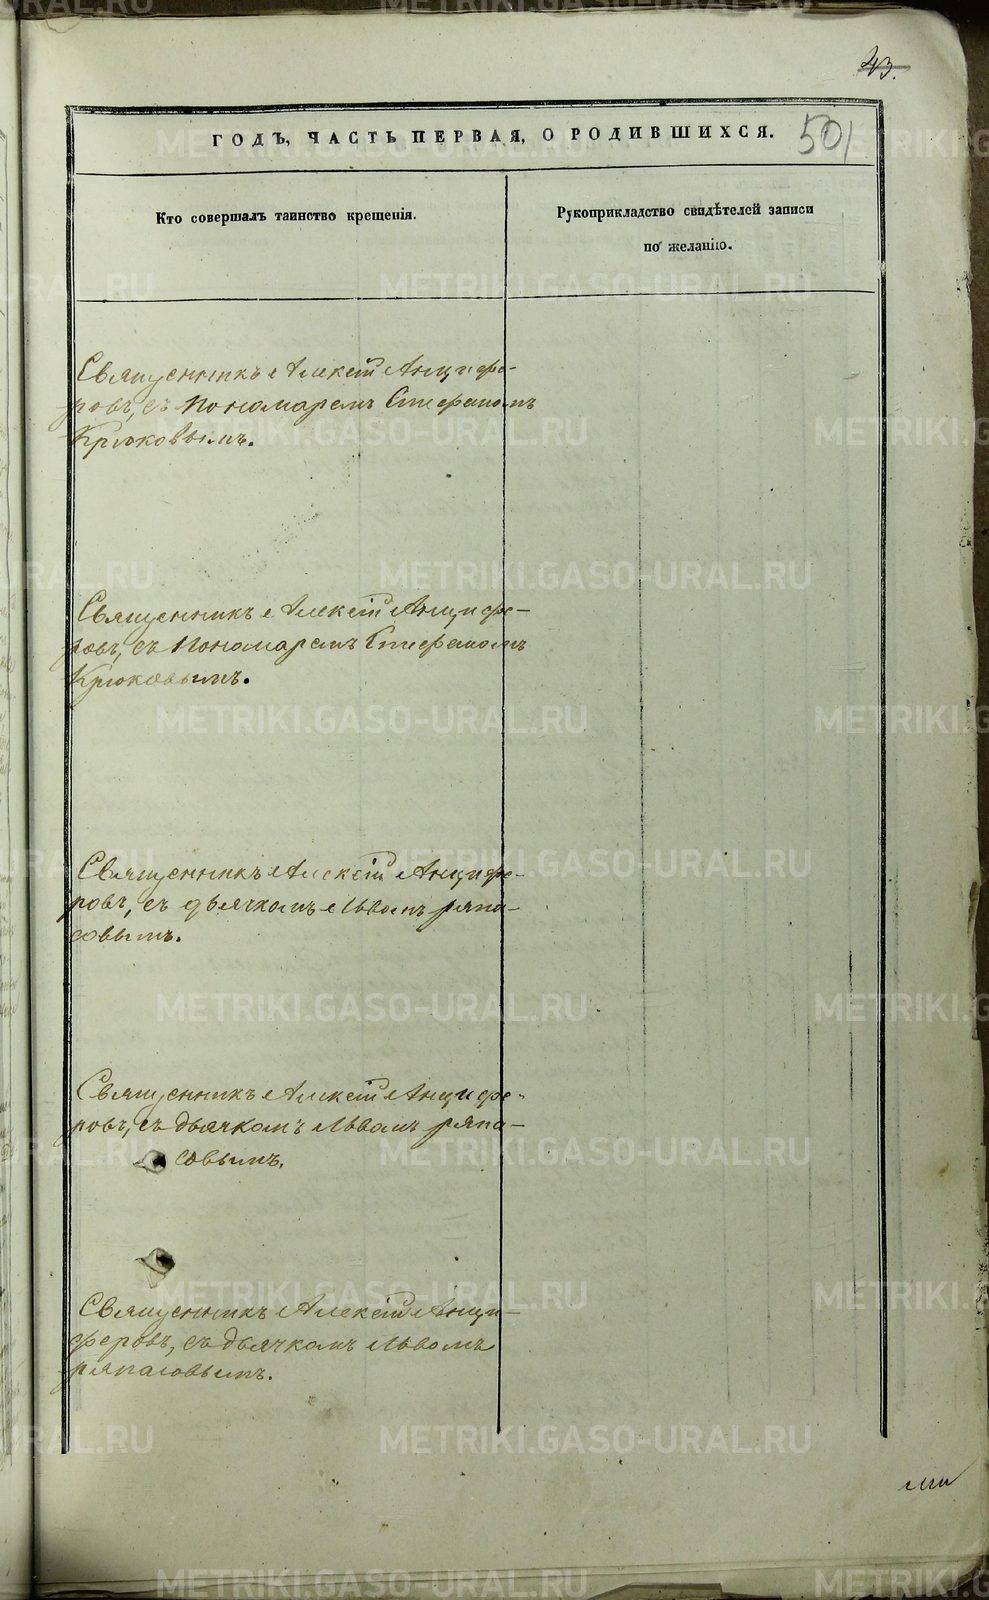 43.
ГОДЪ, ЧАСТЬ ПЕРВАЯ, О РОДИВШИХСЯ.
501
Кто совершалъ таинство крещенія.
Рукоприкладство свидѣтелей записи
по желанію.
Священникъ Алексій Анцифе-
ровъ, съ Пономаремъ Стефаномъ
Крюковымъ.
Священникъ Алексій Анцифе-
ровъ, съ Пономаремъ Стефаномъ
Крюковымъ.
Священникъ Алексій Анцифе-
ровъ, съ дьячкомъ Львомъ ряпа-
совымъ.
Священникъ Алексій Анцифе-
ровъ, съ дьячкомъ Львомъ ряпа-
совымъ.
Священникъ Алексій Анци-
феровъ, съ дьячкомъ Львомъ
ряпасовымъ.
METRIKI.GASO-URAL.RU